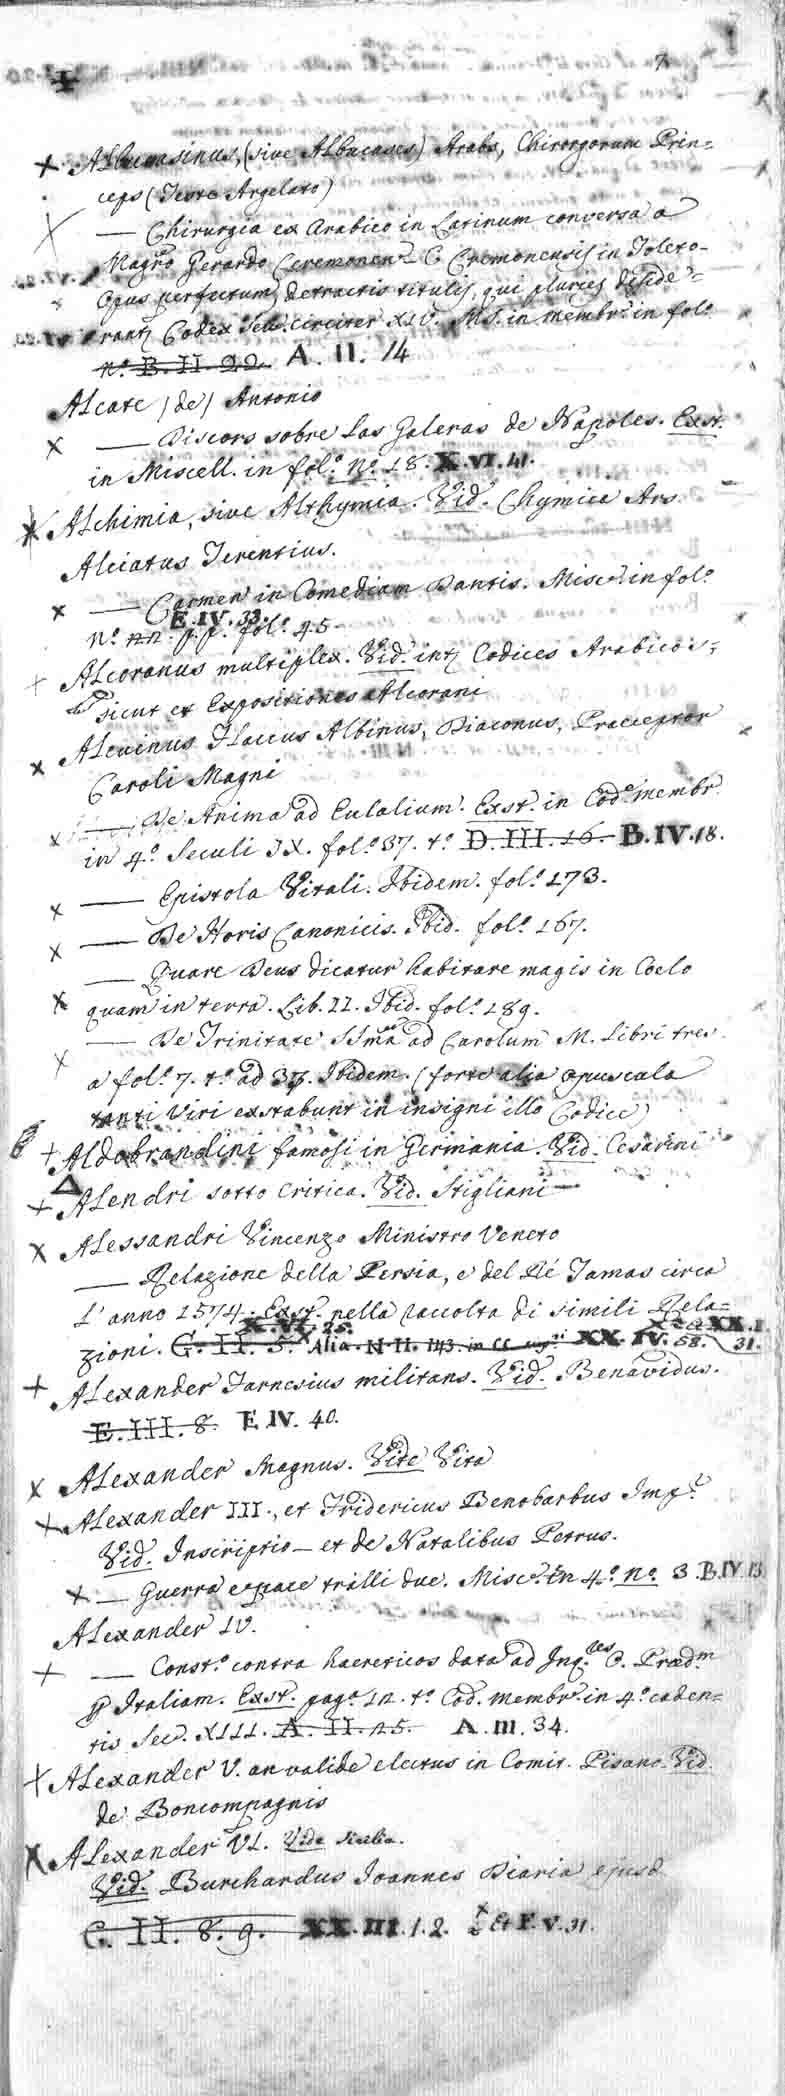 7
Albucasinus, (sive Albucases) Arabs, Chirurgorum Prin=
ceps (Teste Argelato)
— Chirurgia ex Arabico in Latinum conversa a
Magro Gerardo Ceremonen C Cremonensis in Toleto-
Opus perfectum, detractis titulis, qui pluries deside=
rantz Codex sec. circiter XIV. MS. in membr. in fol.o
n.o B. II. 22. A. II. 14
Alcate (de) Antonio
— Discors sobre las Galeras de Napoles. Exst.
in Miscell. in fol.o n.o 18. X. VI. 41.
Alchimia, sive Althymia. Vid. Chymica Ars
Alciatus Terentius.
— Carmen in Comediam Dantis. Misc. in fol.o
E. IV. 33.
n.o 22. p.p. fol.o 45
Alcoranus multiplex. Vid. intz Codices Arabicos;
sicut et Expositiones Alcorani
Alcuinus Flaccus Albinus, Diaconus, Praeceptor
Caroli Magni
— De Anima ad Eulalium. Exst. in Cod. membr.
in 4.o Seculi IX. fol.o 37. t.o D. III. 16. B. IV. 18.
— Epistola Vitali. Ibidem. fol.o 173.
— De Horis Canonicis. Ibid. fol.o 167.
— Quare Deus dicatur habitare magis in Coelo
quam in terra. Lib. II. Ibid. fol.o 189.
— De Trinitate SSma ad Carolum M. Libri tres.
a fol.o 7. t.o ad 37. Ibidem. (forte alia opuscula
tanti Viri exstabunt in insigni illo Codice)
Aldobrandini famosi in Germania. Vid. Cesarini
Alendri sotto Critica. Vid. Stigliani
Alessandri Vincenzo Ministro Veneto
— Relazione della Persia, e del Ré Tamas circa
l'anno 1574. Exst. nella raccolta di simili Rela=
X. VI. 25. & XX. I.
zioni. C. II. 5. Alia. N. II. 143. in XX. IV. 58. 31.
Alexander Farnesius militans. Vid. Benavidus.
E. III. 8. E. IV. 40.
Alexander Magnus. Vide Vita
Alexander III., et Fridericus Benobarbus Imp.r
Vid. Inscriptio — et de Natalibus Petrus.
— Guerra e pace trà lli due. Misc. in 4.o n.o 3. B. IV. 13
Alexander IV.
— Const.o contra haereticos data ad Inq.res O. Praed.m
p Italiam. Exst. pag. 12. t.o Cod. membr. in 4.o caden=
tis Sec. XIII. A. II. 25. A. III. 34.
Alexander V. an valide electus in Comit. Pisano. Vid.
de Boncompagnis
Alexander VI. Vide Sicilia.
Vid. Burchardus Joannes Diaria ejusd
C. II. 8. 9. XX. III. 1. 2. & F. V. 31.